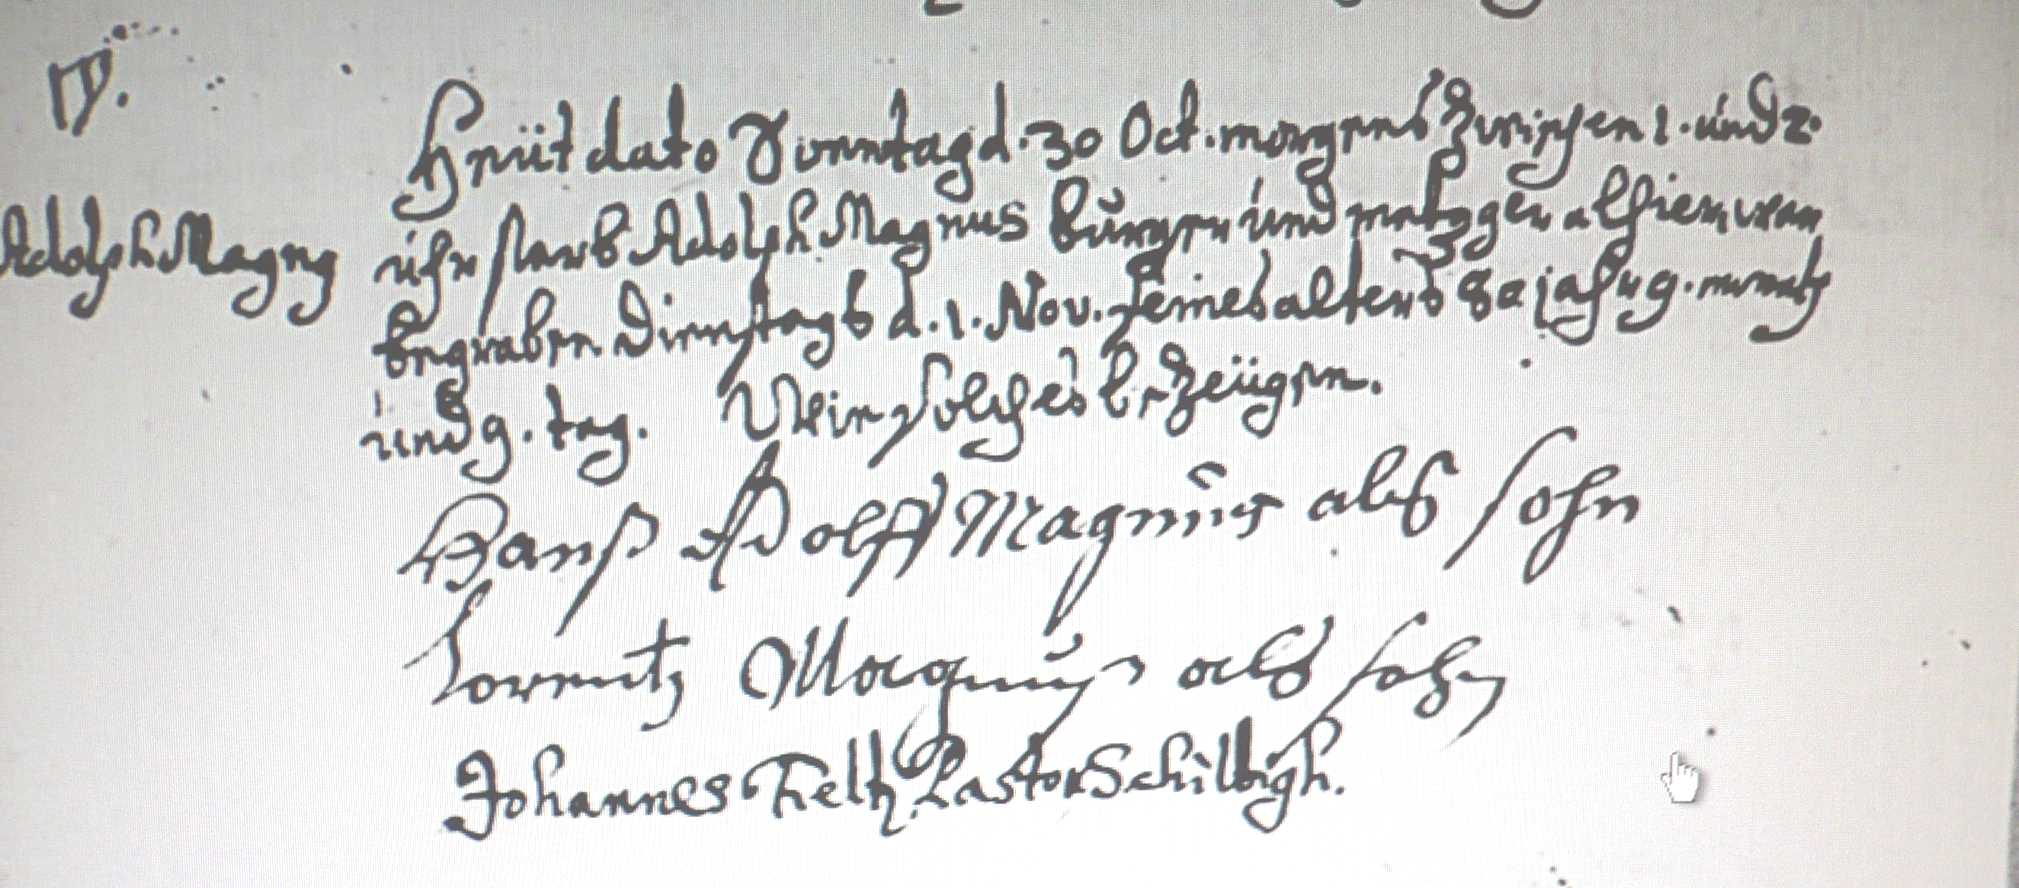 19.
Adolph Magnus
Heüt dato Sonntag d. 30 Oct. morgens zwischen 1. und 2.
uhr starb Adolph Magnus burger und metzger alhier, war
begraben Dienstags d. 1. Nov. seines alters 80 jahr 9. monath
und 9. tag. Wie solches bezeügen.
Hanß Adolff Magnus alß sohn
Lorentz Magnuß alß sohn
Johannes Feltz Pastor Schilttigh.